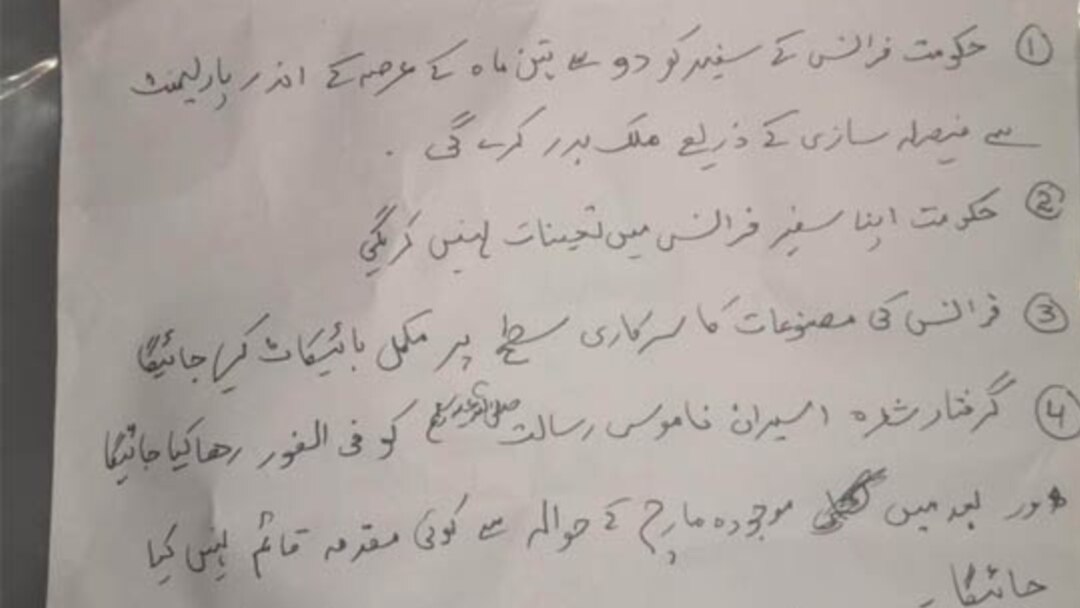 ① حکومت فرانس کے سفیر کو دو سے تین ماہ کے عرصہ کے اندر پارلیمنٹ
سے فیصلہ سازی کے ذریعے ملک بدر کرے گی ۔
② حکومت اپنا سفیر فرانس میں تعینات نہیں کریگی
③ فرانس کی مصنوعات کا سرکاری سطح پر مکمل بائیکاٹ کیا جائیگا
④ گرفتار شدہ اسیران ناموس رسالت صلی اللہ علیہ وسلم کو فی الفور رھا کیا جائیگا
اور بعد میں موجودہ مارچ کے حوالہ سے کوئی مقدمہ قائم نہیں کیا
جائیگا ۔